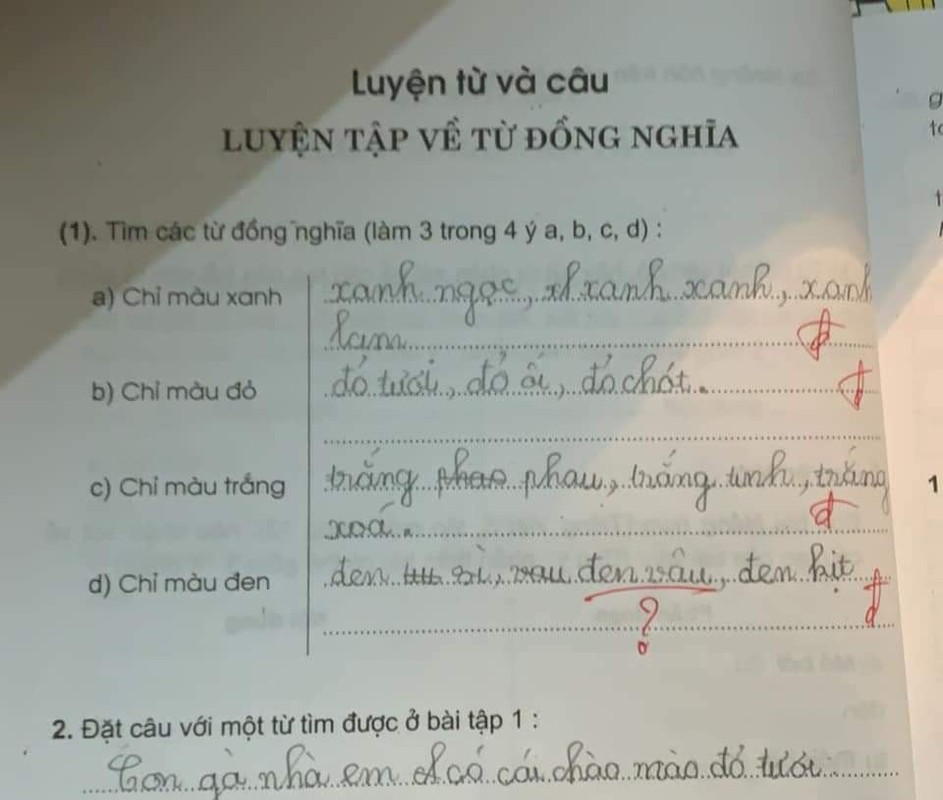 Luyện từ và câu
LUYỆN TẬP VỀ TỪ ĐỒNG NGHĨA
(1). Tìm các từ đồng nghĩa (làm 3 trong 4 ý a, b, c, d) :
a) Chỉ màu xanh xanh ngọc, xanh xanh, xanh
lam
đ
b) Chỉ màu đỏ đỏ tươi, đỏ ối, đỏ chót.
đ
c) Chỉ màu trắng trắng phao phau, trắng tinh, trắng
xoá.
đ
d) Chỉ màu đen đen sì, vau đen vâu, đen kịt
đ
?
2. Đặt câu với một từ tìm được ở bài tập 1 :
Con gà nhà em có cái chào mào đỏ tươi
1